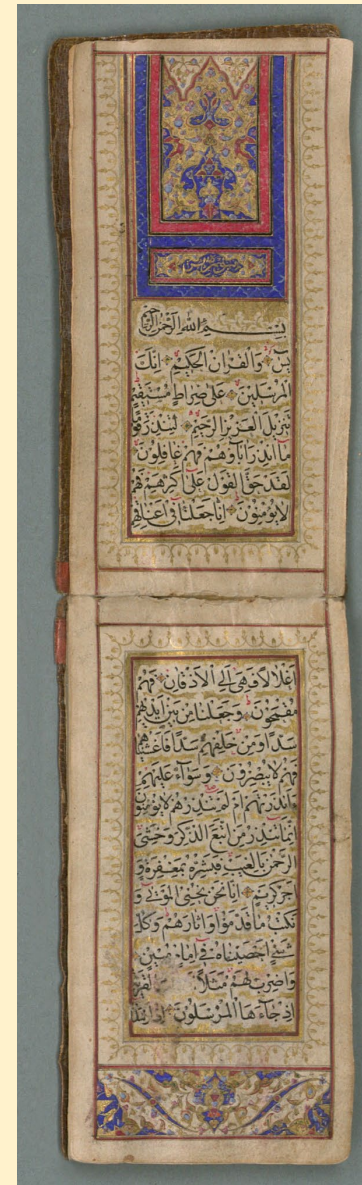 بسم الله الرحمن الرحیم
یس والقران الحکیم انک
المرسلین علی صراط مستقیم
تنزیل العزیز الرحیم لتنذر قوما
ما انذر اباؤهم فهم غافلون
لقد حق القول علی اکثرهم فهم
لا یؤمنون انا جعلنا فی اعناقهم
اغلالا فهی الی الاذقان فهم
مقمحون وجعلنا من بین ایدیهم
سدا ومن خلفهم سدا فاغشیناهم
فهم لا یبصرون وسواء علیهم
ءانذرتهم ام لم تنذرهم لا یؤمنون
انما تنذر من اتبع الذکر وخشی
الرحمن بالغیب فبشره بمغفرة و
اجر کریم انا نحن نحیی الموتی و
نکتب ما قدموا واثارهم وکل
شیئ احصیناه فی امام مبین
واضرب لهم مثلا القریة
اذ جاءها المرسلون اذ